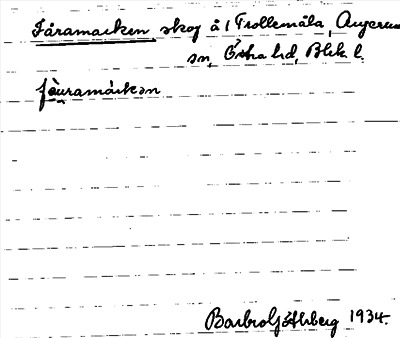 Fåramarken skog å 1 Trollemåla, Augerums
sn, Östra hd, Blek. l.
fàuramárkən
Barbro Göthberg 1934.